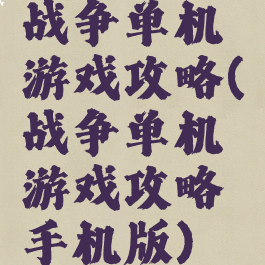 战争单机
游戏攻略(
战争单机
游戏攻略
手机版)